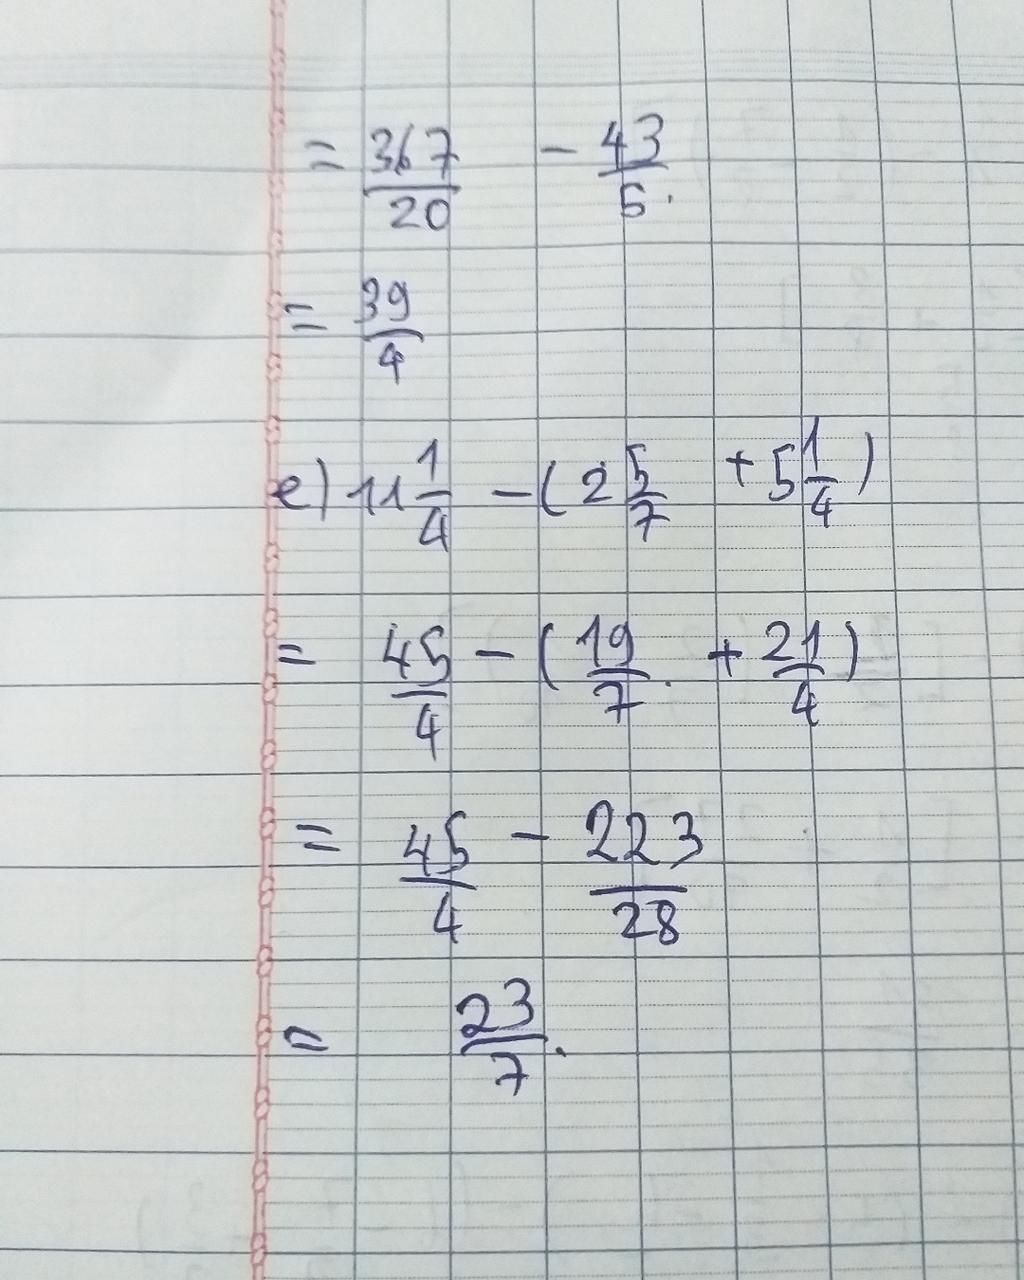 = 367/20 - 43/5.
= 39/4
e) 11 1/4 - (2 5/7 + 5 1/4)
= 45/4 - (19/7. + 21/4)
= 45/4 - 223/28
= 23/7.